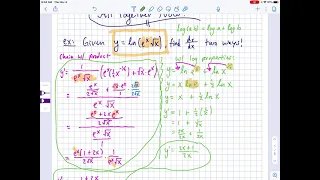 All Together Now!
log(a·b) = log a + log b
ex: Given y = ln(e^x √x) find dy/dx two ways!
chain w/ product
y' = 1/(e^x √x) · (e^x(½ x^-½) + √x · e^x)
= (e^x/(2√x) + √x·e^x · 2√x/2√x)/(e^x √x)
= ((e^x + 2x e^x)/(2√x))/(e^x √x)
= e^x(1+2x)/(2√x) · 1/(e^x √x)
w/ log properties
y = ln e^x + ln x^½
y = x ln e + ½ ln x
y = x + ½ ln x
y' = 1 + ½(1/x)
= 1 + 1/2x
= 2x/2x + 1/2x
y' = (2x+1)/2x